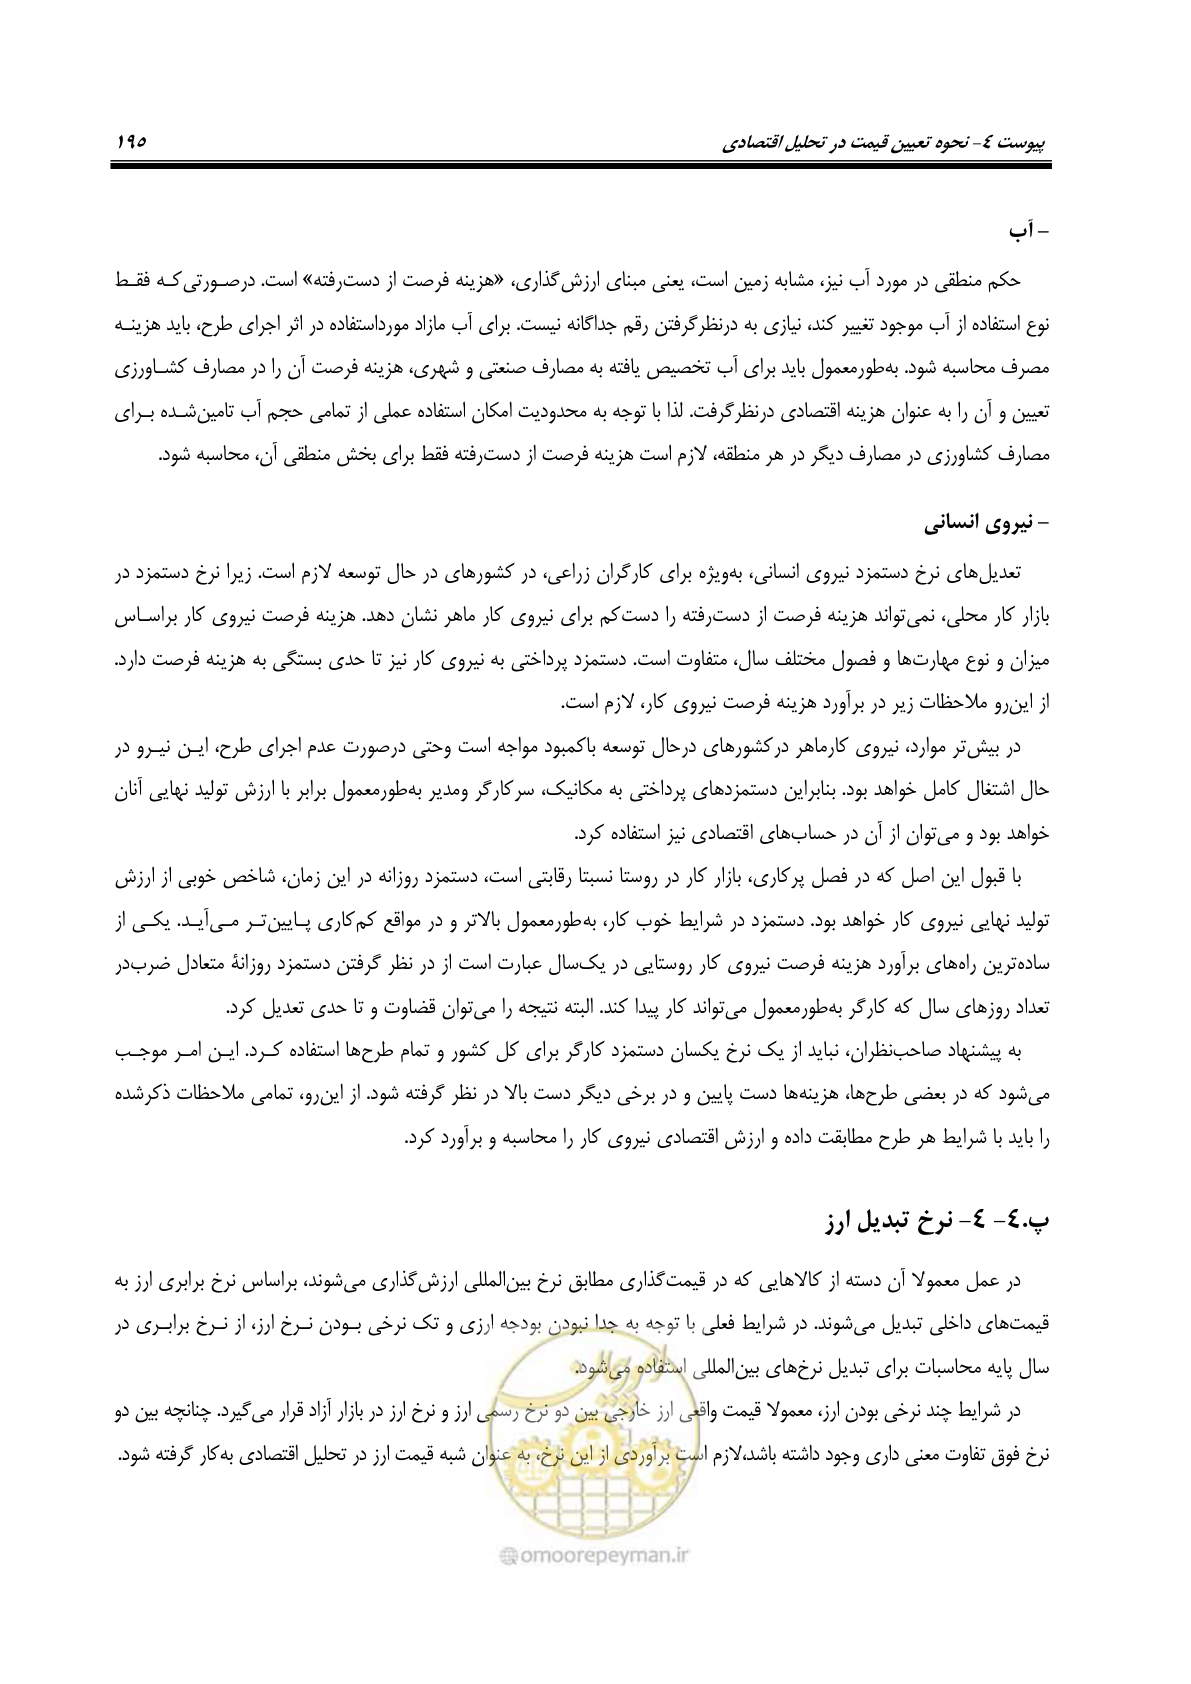 پیوست ٤- نحوه تعیین قیمت در تحلیل اقتصادی
١٩٥
– آب
حکم منطقی در مورد آب نیز، مشابه زمین است، یعنی مبنای ارزش‌گذاری، «هزینه فرصت از دست‌رفته» است. درصورتی‌که فقط
نوع استفاده از آب موجود تغییر کند، نیازی به درنظرگرفتن رقم جداگانه نیست. برای آب مازاد مورداستفاده در اثر اجرای طرح، باید هزینه
مصرف محاسبه شود. به‌طورمعمول باید برای آب تخصیص یافته به مصارف صنعتی و شهری، هزینه فرصت آن را در مصارف کشاورزی
تعیین و آن را به عنوان هزینه اقتصادی درنظرگرفت. لذا با توجه به محدودیت امکان استفاده عملی از تمامی حجم آب تامین‌شده برای
مصارف کشاورزی در مصارف دیگر در هر منطقه، لازم است هزینه فرصت از دست‌رفته فقط برای بخش منطقی آن، محاسبه شود.
– نیروی انسانی
تعدیل‌های نرخ دستمزد نیروی انسانی، به‌ویژه برای کارگران زراعی، در کشورهای در حال توسعه لازم است. زیرا نرخ دستمزد در
بازار کار محلی، نمی‌تواند هزینه فرصت از دست‌رفته را دست‌کم برای نیروی کار ماهر نشان دهد. هزینه فرصت نیروی کار براساس
میزان و نوع مهارت‌ها و فصول مختلف سال، متفاوت است. دستمزد پرداختی به نیروی کار نیز تا حدی بستگی به هزینه فرصت دارد.
از این‌رو ملاحظات زیر در برآورد هزینه فرصت نیروی کار، لازم است.
در بیش‌تر موارد، نیروی کارماهر درکشورهای درحال توسعه باکمبود مواجه است وحتی درصورت عدم اجرای طرح، این نیرو در
حال اشتغال کامل خواهد بود. بنابراین دستمزدهای پرداختی به مکانیک، سرکارگر ومدیر به‌طورمعمول برابر با ارزش تولید نهایی آنان
خواهد بود و می‌توان از آن در حساب‌های اقتصادی نیز استفاده کرد.
با قبول این اصل که در فصل پرکاری، بازار کار در روستا نسبتا رقابتی است، دستمزد روزانه در این زمان، شاخص خوبی از ارزش
تولید نهایی نیروی کار خواهد بود. دستمزد در شرایط خوب کار، به‌طورمعمول بالاتر و در مواقع کم‌کاری پایین‌تر می‌آید. یکی از
ساده‌ترین راه‌های برآورد هزینه فرصت نیروی کار روستایی در یک‌سال عبارت است از در نظر گرفتن دستمزد روزانهٔ متعادل ضرب‌در
تعداد روزهای سال که کارگر به‌طورمعمول می‌تواند کار پیدا کند. البته نتیجه را می‌توان قضاوت و تا حدی تعدیل کرد.
به پیشنهاد صاحب‌نظران، نباید از یک نرخ یکسان دستمزد کارگر برای کل کشور و تمام طرح‌ها استفاده کرد. این امر موجب
می‌شود که در بعضی طرح‌ها، هزینه‌ها دست پایین و در برخی دیگر دست بالا در نظر گرفته شود. از این‌رو، تمامی ملاحظات ذکرشده
را باید با شرایط هر طرح مطابقت داده و ارزش اقتصادی نیروی کار را محاسبه و برآورد کرد.
پ.٤- ٤- نرخ تبدیل ارز
در عمل معمولا آن دسته از کالاهایی که در قیمت‌گذاری مطابق نرخ بین‌المللی ارزش‌گذاری می‌شوند، براساس نرخ برابری ارز به
قیمت‌های داخلی تبدیل می‌شوند. در شرایط فعلی با توجه به جدا نبودن بودجه ارزی و تک نرخی بودن نرخ ارز، از نرخ برابری در
سال پایه محاسبات برای تبدیل نرخ‌های بین‌المللی استفاده می‌شود.
در شرایط چند نرخی بودن ارز، معمولا قیمت واقعی ارز خارجی بین دو نرخ رسمی ارز و نرخ ارز در بازار آزاد قرار می‌گیرد. چنانچه بین دو
نرخ فوق تفاوت معنی داری وجود داشته باشد،لازم است برآوردی از این نرخ، به عنوان شبه قیمت ارز در تحلیل اقتصادی به‌کار گرفته شود.
امور پیمان
@omoorepeyman.ir